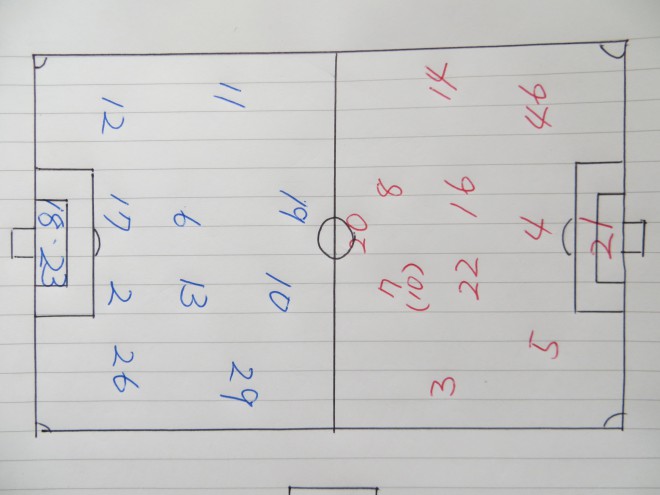 19 10
11 29
6 13
12 17 2 26
18・23
20
7 8
(10)
3 22 16 14
5 4 46
21